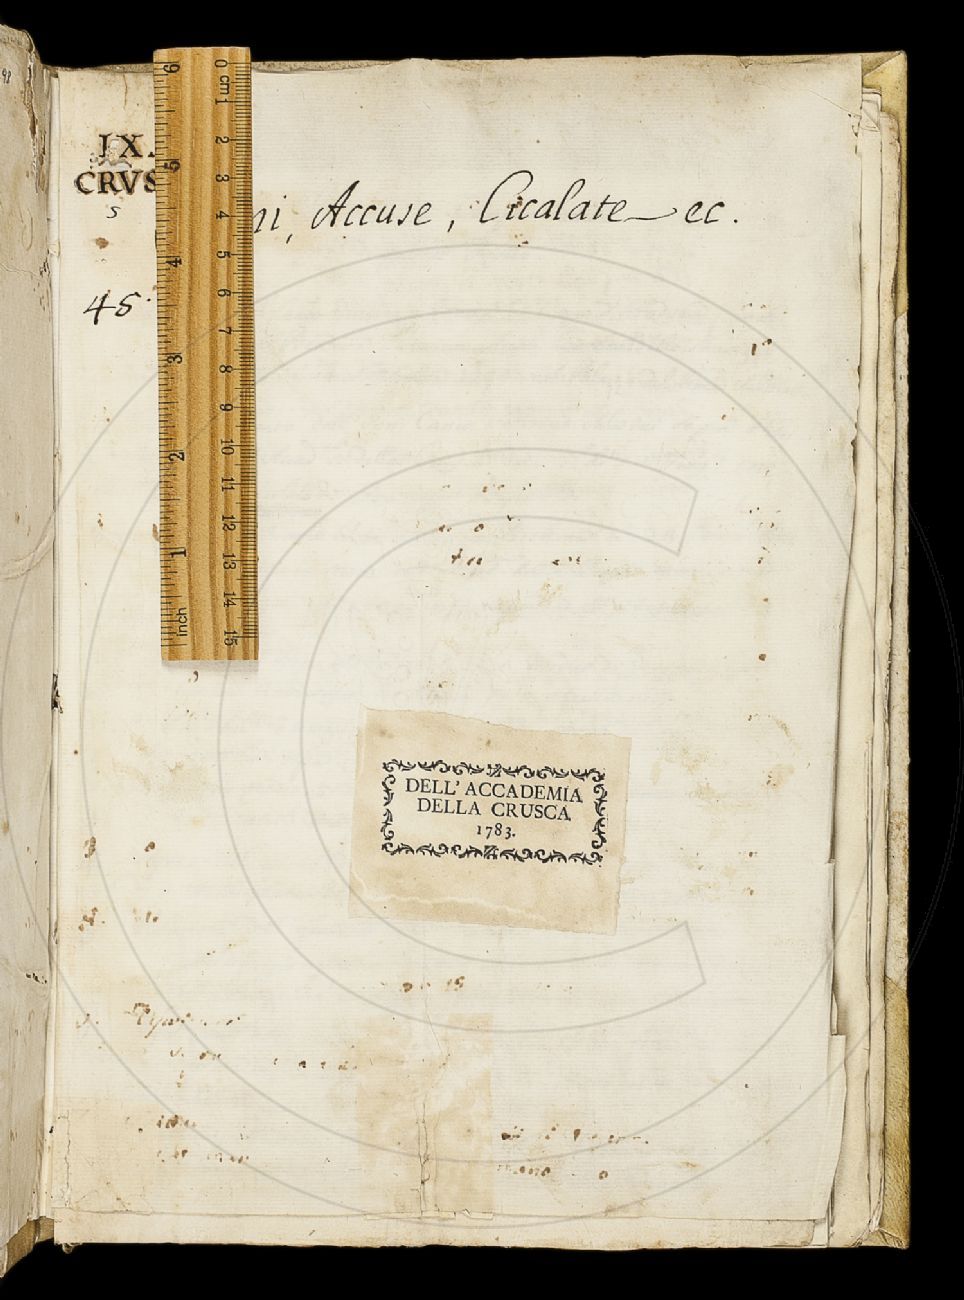 IX.
CRVS
5
ni, Accuse, Cicalate ec.
45.
DELL' ACCADEMIA
DELLA CRUSCA
1783.
0 cm 1 2 3 4 5 6 7 8 9 10 11 12 13 14 15
6 5 4 3 2 1 inch
98